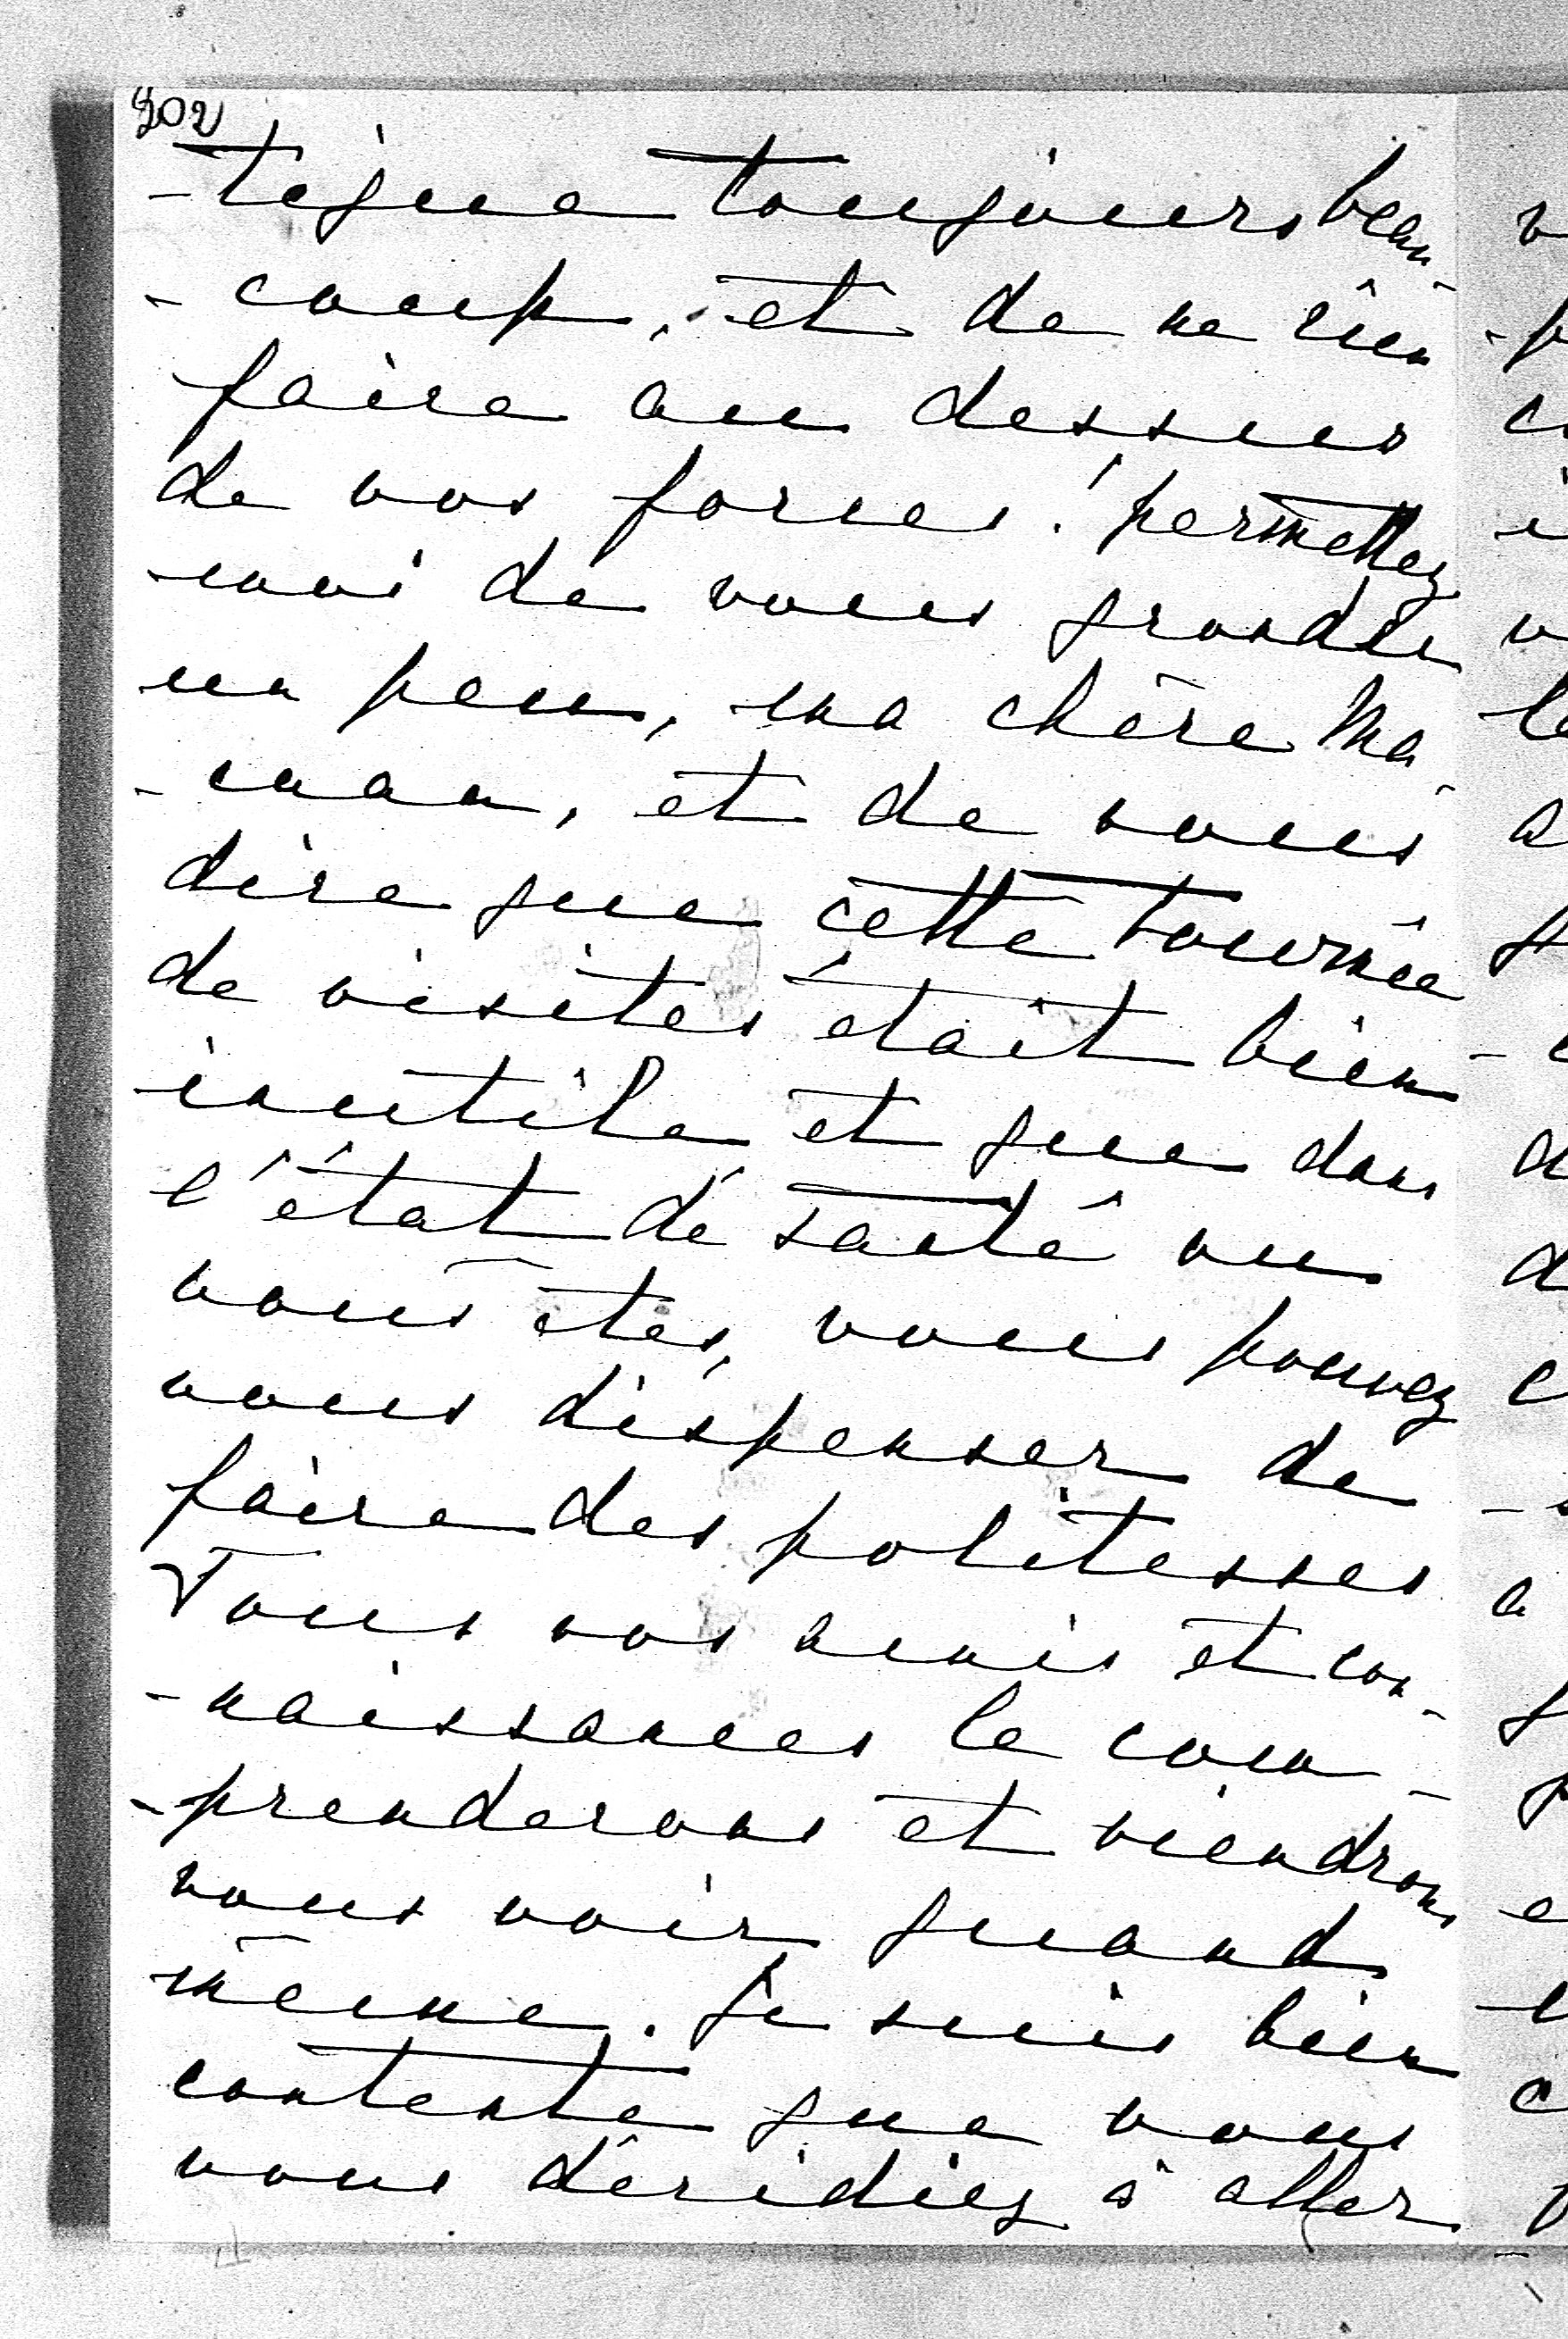 202
-tigue toujours beau-
-coup, et de ne rien
faire au dessus
de vos forces! permettez
moi de vous gronder
un peu, ma chère Ma-
-man, et de vous
dire que cette tournée
de visites était bien
inutile et que dans
l'état de santé ou
vous êtes, vous pouvez
vous dispenser de
faire des politesses
Tous vos amis et con-
-naissances le com-
-prenderons et viendrons
vous voir quand
même. Je suis bien
contente que vous
vous décidiez à aller